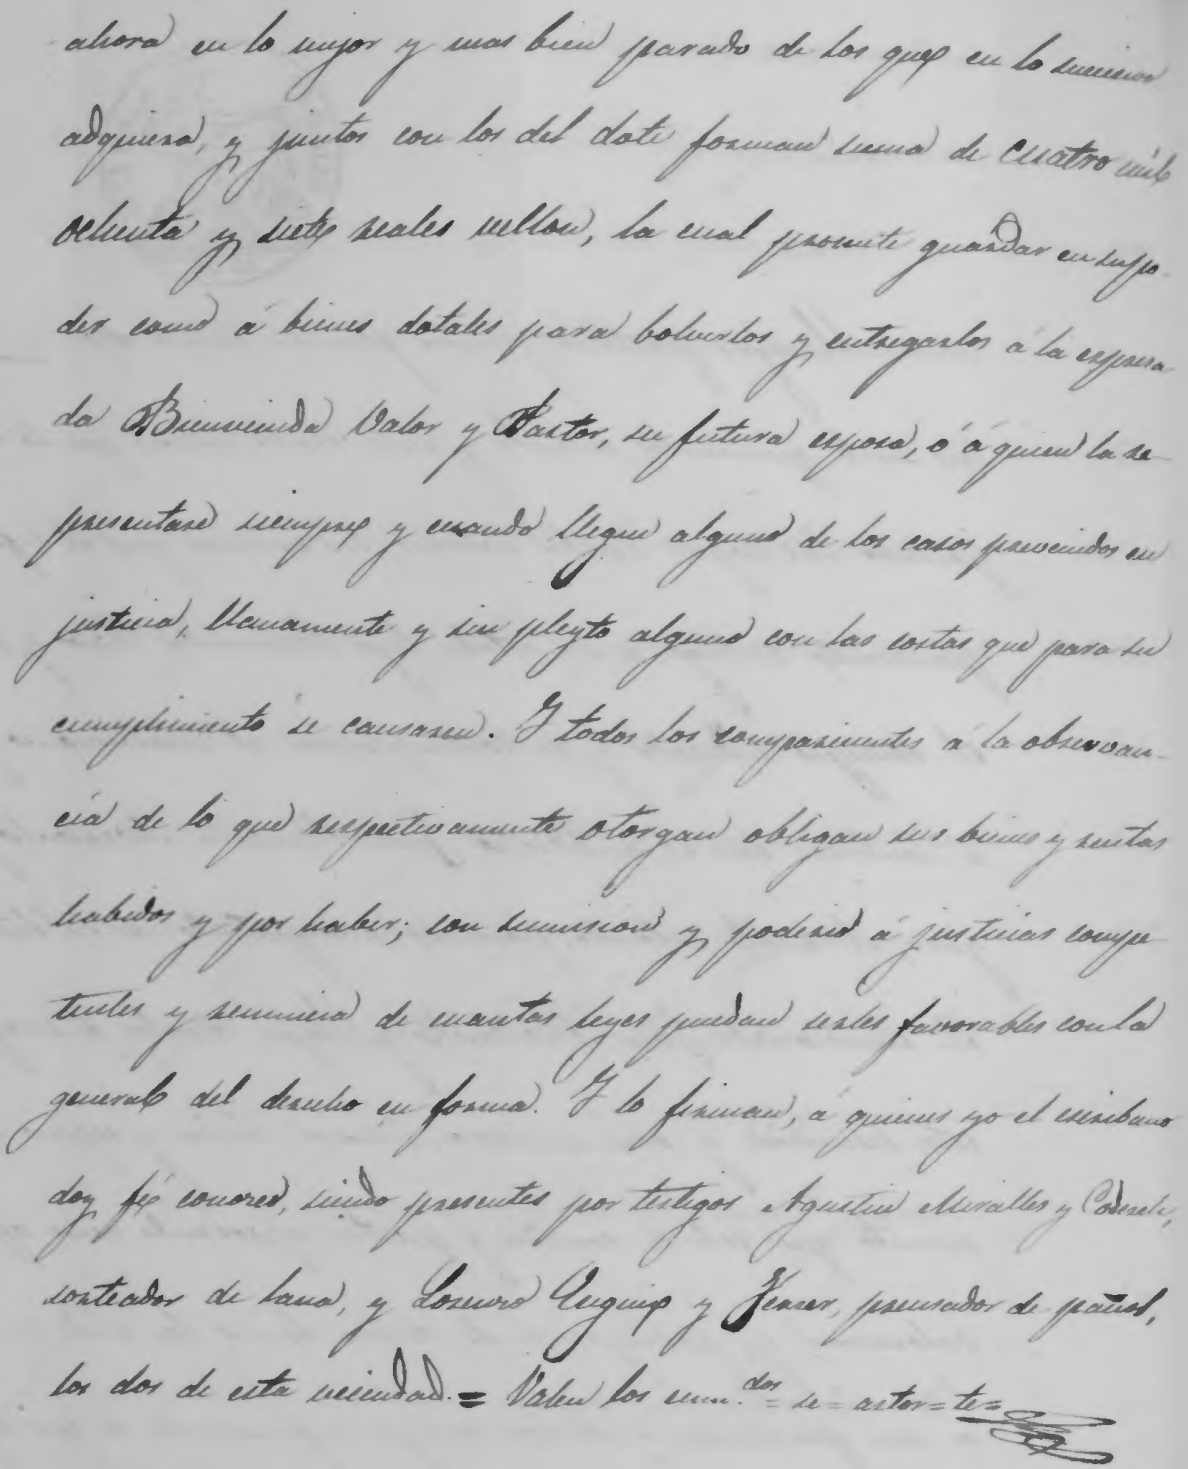 ahora en lo mejor y mas bien parado de los que en lo sucesivo
adquiera, y juntos con los del dote forman suma de cuatro mil
ochenta y siete reales vellon, la cual promete guardar en supo-
der como á bienes dotales para bolverlos y entregarlos á la espresa-
da Bienvenida Valor y Pastor, su futura esposa, ó á quien la re-
presentare siempre y cuando llegue alguno de los casos prevenidos en
justicia, llanamente y sin pleyto alguno con las costas que para su
cumplimiento se causaren. Y todos los comparecientes á la observan-
cia de lo que respectivamente otorgan obligan sus bienes y rentas
habidos y por haber; con sumision y poderio á justicias compe-
tentes y renuncia de cuantas leyes puedan serles favorables con la
general del derecho en forma. Y lo firman, á quienes yo el escribano
doy fé conozco, siendo presentes por testigos Agustin Miralles y
sorteador de lana, y Lorenzo Enguix y Ferrer, prensador de paños,
los dos de esta vecindad. = Valen los enm.dos = se = astor = te =